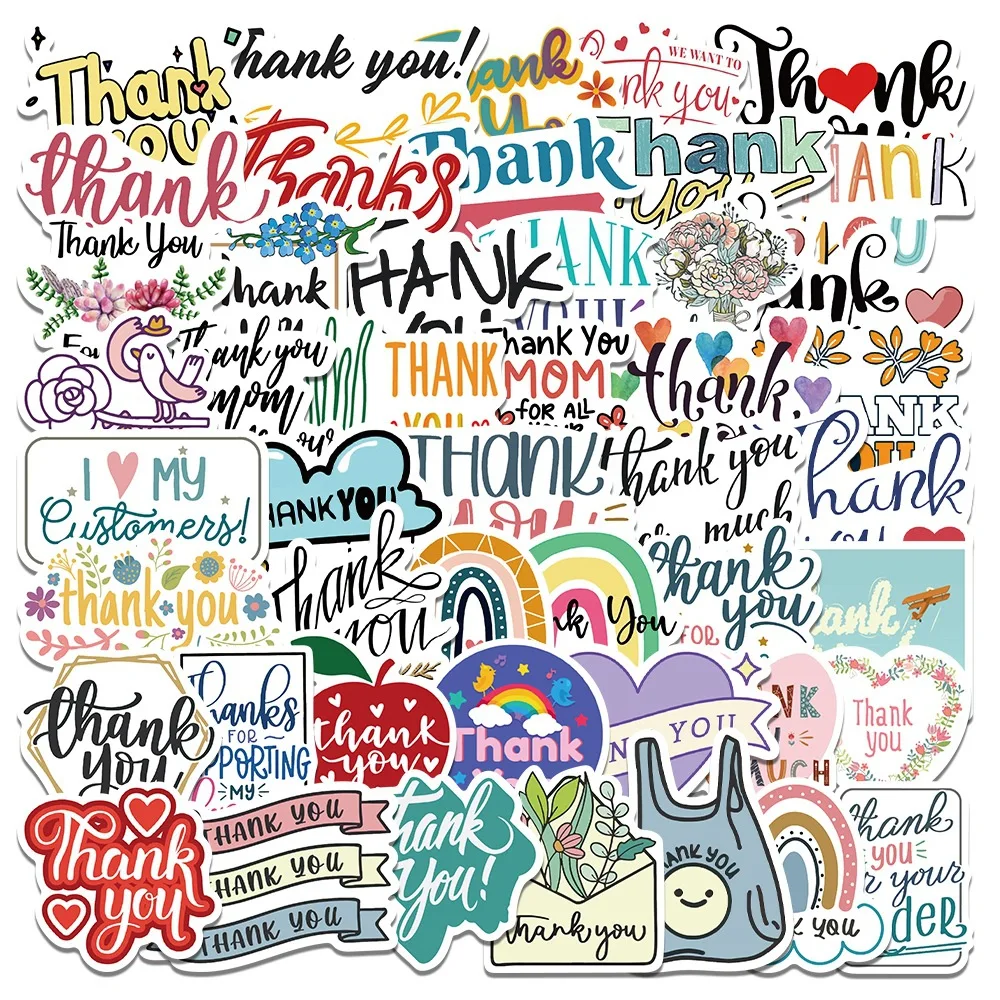 Thank
you
hank you!
ank
y
WE WANT TO
nk you
Th nk
thank
Thanks
Thank
Thank
you
IANK
YOU
Thank You
Fo
hank
HANK
YOU
HANK
YOU
unk
Thank you
mom
THANK
YOU
Thank You
MOM
FOR ALL
YOUR
thank
ANK
OU
I MY
Customers!
HANK YOU
THANK
you
thank you
so much
hank
you
thank you
thank
you
nk You
Thank
you
FOR
ank
thank
you
Thanks
FOR
PORTING
MY
thank
you
Thank
YOU
NK
UCH
Thank
you
Thank
you
THANK YOU
THANK YOU
THANK YOU
hank
you!
Thank you
THANK YOU
K YOU
thank
you
r your
der